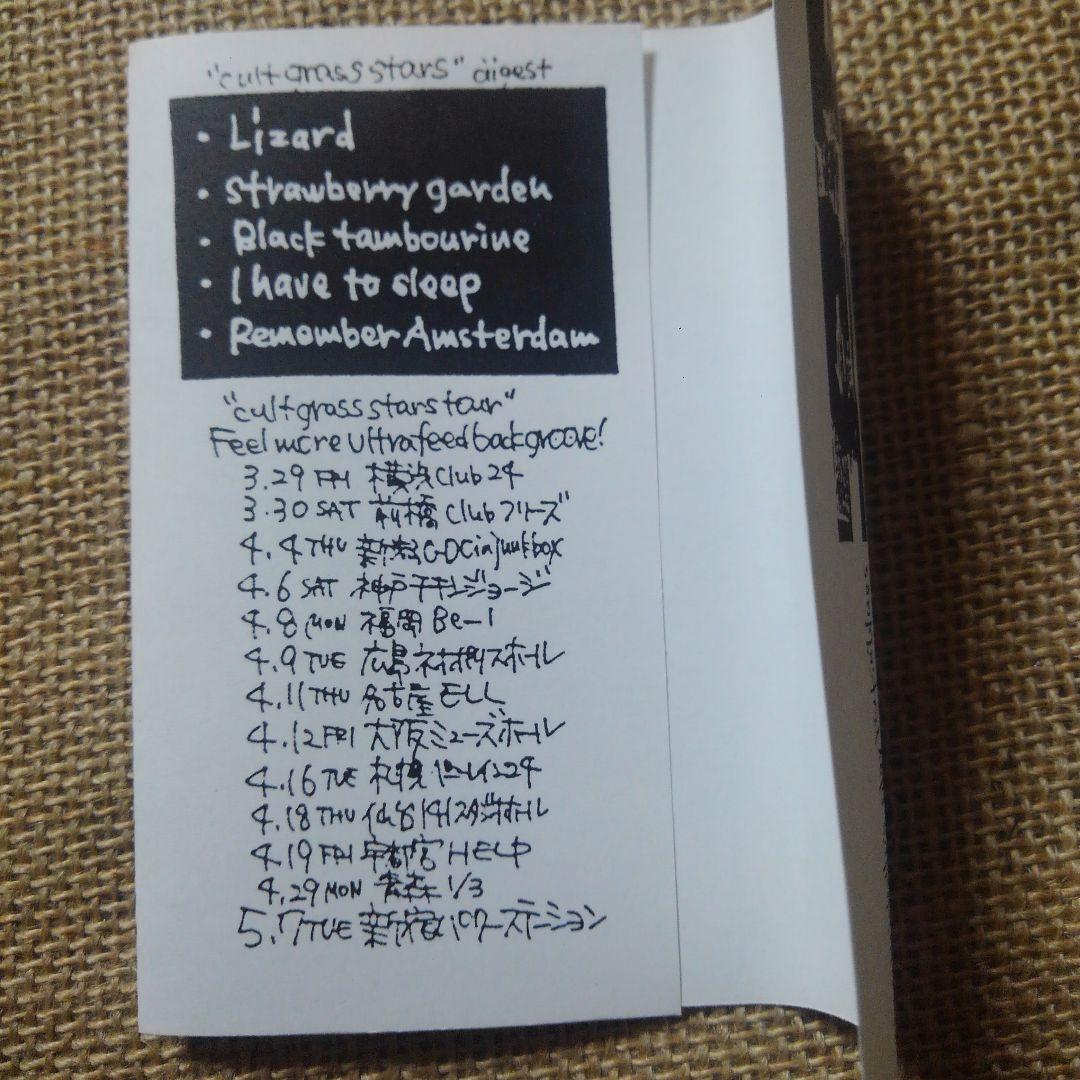 "cult grass stars" digest
• Lizard
• strawberry garden
• Black tambourine
• I have to sleep
• Remember Amsterdam
"cult grass stars tour"
Feel more ultra feed back groove!
3.29 FRI 横浜 Club 24
3.30 SAT 前橋 Club フリーズ
4.4 THU 新潟 O-DO in junkbox
4.6 SAT 神戸チキンジョージ
4.8 MON 福岡 Be-1
4.9 TUE 広島ネオポリスホール
4.11 THU 名古屋 ELL
4.12 FRI 大阪ミューズホール
4.16 TUE 札幌ペニーレイン24
4.18 THU 仙台141スタジオホール
4.19 FRI 宇都宮 HELP
4.29 MON 青森 1/3
5.7 TUE 新宿パワーステーション